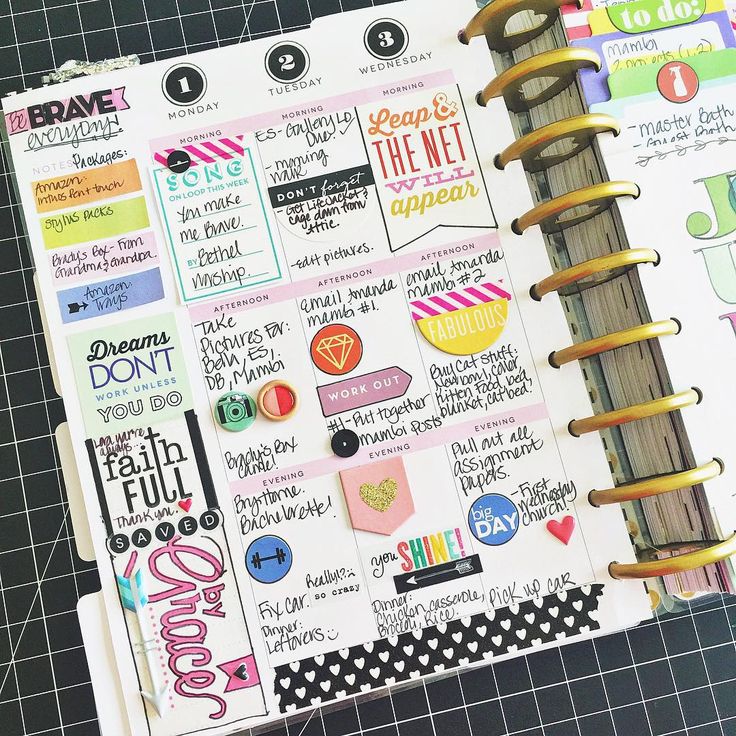 Be BRAVE
everyday
NOTES
Packages:
Amazon:
Stylus Packs
Brady's Box - From
Grandma & Grandpa.
Amazon:
Trays
Dreams
DON'T
WORK UNLESS
YOU DO
Lord you're
always...
faith
FULL
Thank you.
SAVED
by
Grace
1
MONDAY
MORNING
SONG
ON LOOP THIS WEEK
You make
me Brave.
BY Bethel
Worship.
AFTERNOON
Take
Pictures For:
Bella, ES,
DB, Mambi
Brady's Box
Came!
EVENING
Bry-Home.
Bachelorette!
Really!?
so crazy
Fix car.
Dinner:
Leftovers
2
TUESDAY
MORNING
ES - Gallery LO
Due.
- morning
walk
DON'T forget
- Get Life Jacket &
page down from
attic.
- edit pictures.
AFTERNOON
Email Amanda
mambi #1.
WORK OUT
#1 - Put together
Mambi Posts
EVENING
you SHINE!
Dinner:
Chicken casserole,
Broccoli, Rice.
3
WEDNESDAY
MORNING
Leap &
THE NET
WILL
appear
AFTERNOON
email Amanda
mambi #2
FABULOUS
Buy Cat Stuff:
kitten Food, bed,
blanket, cat bed,
EVENING
Pull out all
assignment
papers.
big
DAY
- First
Wednesday
Church!
Pick up car
to do:
Mambi
2 projects (1,2)
- Master Bath
- Guest Bath
J
U